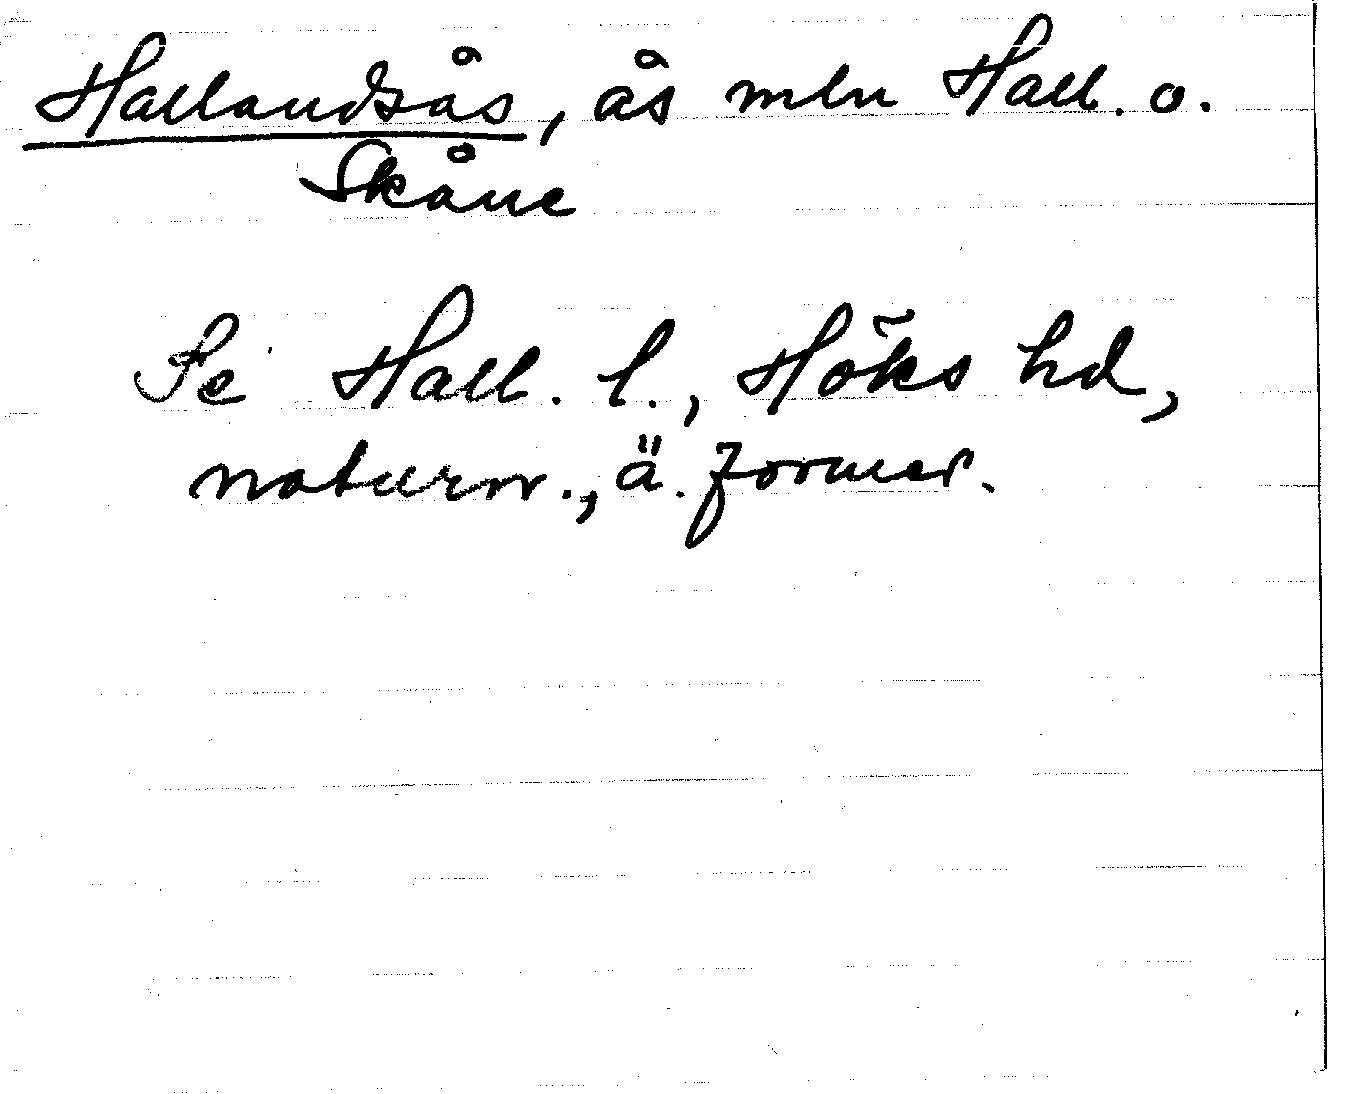 Hallandsås, ås mln Hall. o.
Skåne
Se Hall. l., Höks hd,
naturn., ä. former.